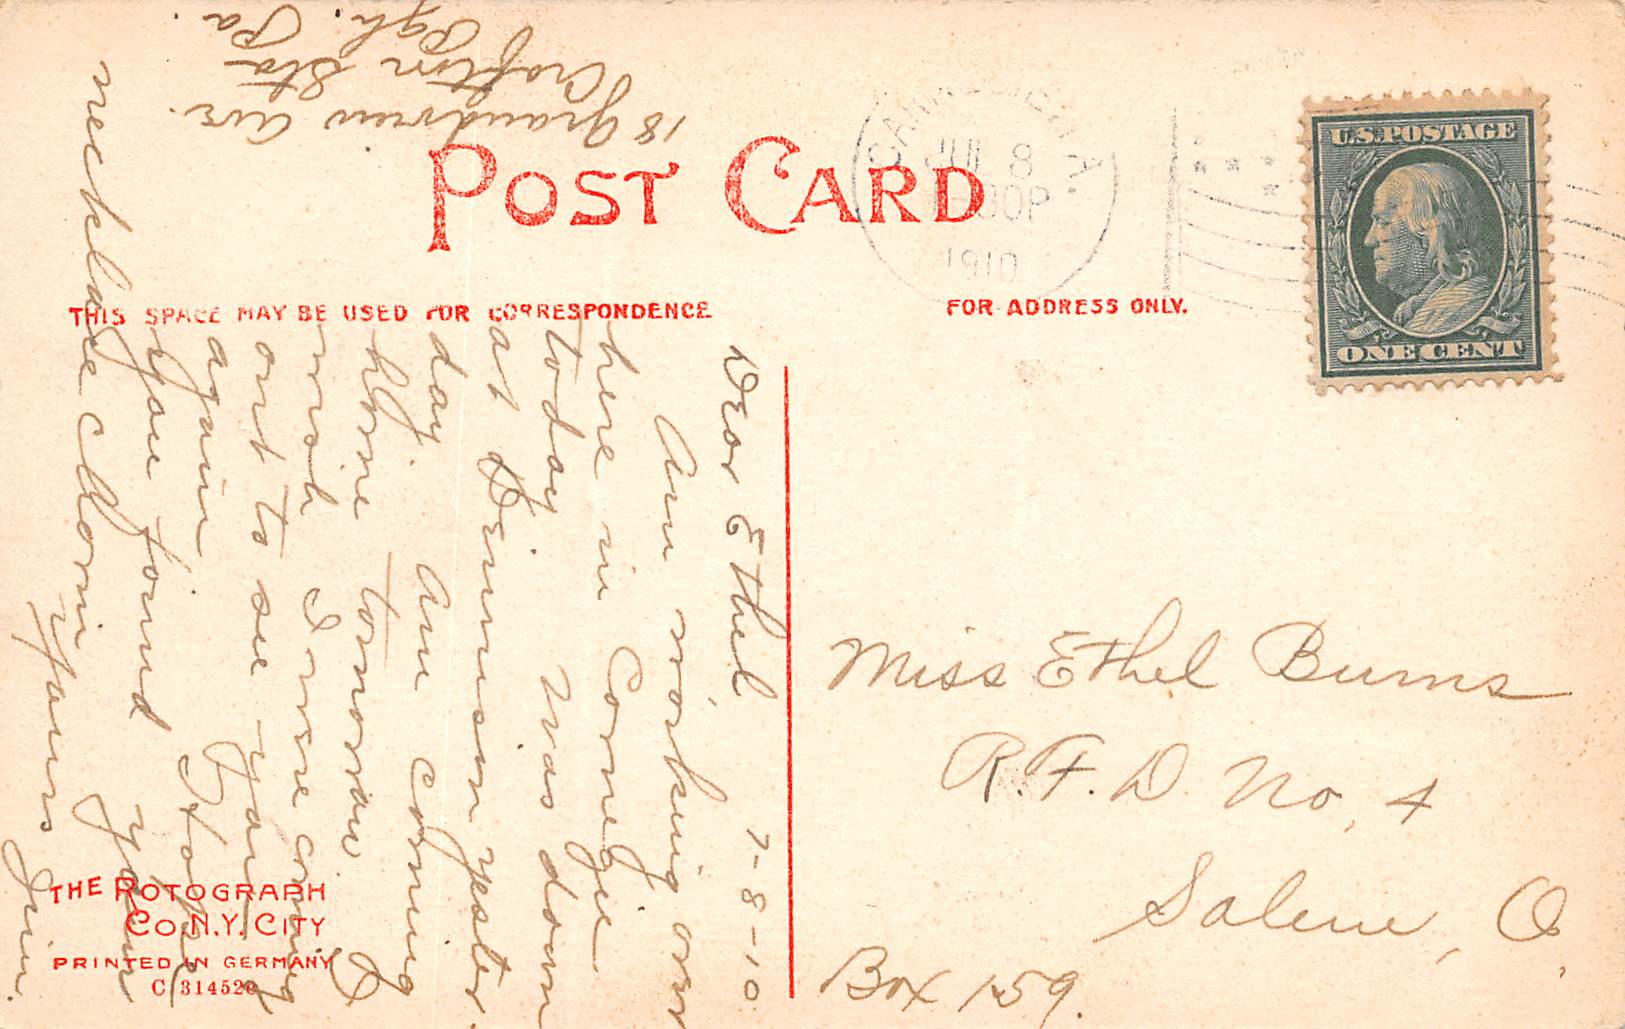 18 Grandview Ave.
Crafton Sta
Pgh. Pa.
POST CARD
CARNEGIE, PA.
JUL 8
00P
1910
U.S. POSTAGE
ONE CENT
THIS SPACE MAY BE USED FOR CORRESPONDENCE
FOR ADDRESS ONLY.
7-8-10
Dear Ethel
Am working over
here in Carnegie
today. Was down
at Dennison yester
day. Am coming
home tomorow. I
wish I were coming
out to see you
again. Hope
you found your
necklace charm
Yours
Jim.
Miss Ethel Burns
R.F.D. No. 4
Salem, O.
Box 159.
THE ROTOGRAPH
CO. N.Y. CITY
PRINTED IN GERMANY
C 31452